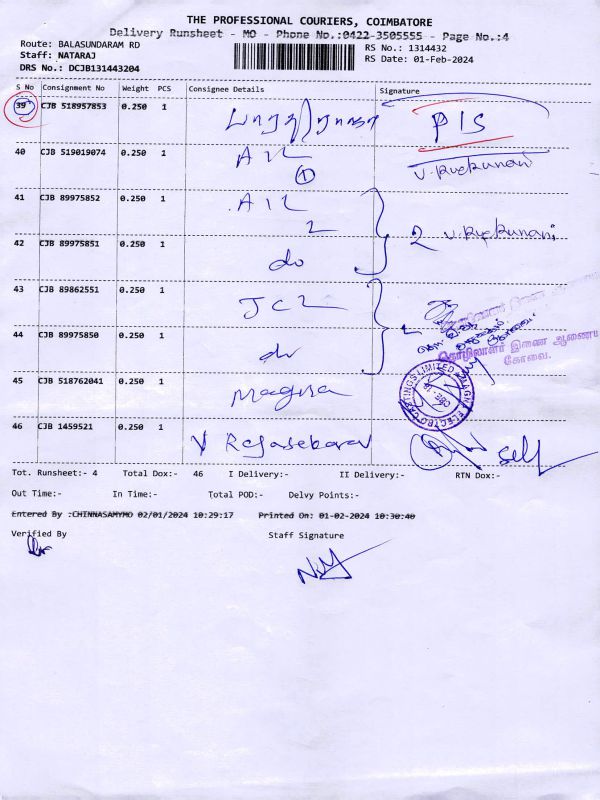 THE PROFESSIONAL COURIERS, COIMBATORE
Delivery Runsheet - MO - Phone No.:0422-3505555 - Page No.:4
Route: BALASUNDARAM RD
RS No.: 1314432
Staff: NATARAJ
RS Date: 01-Feb-2024
DRS No.: DCJB131443204
S No Consignment No Weight PCS Consignee Details Signature
39 CJB 518957853 0.250 1 PIS
40 CJB 519019074 0.250 1 AIL
1
41 CJB 89975852 0.250 1 AIL
2
42 CJB 89975851 0.250 1 do 2
43 CJB 89862551 0.250 1 JCL
44 CJB 89975850 0.250 1 do
தொழிலாளர் இணை ஆணைய
கோவை.
45 CJB 518762041 0.250 1 Magna
46 CJB 1459521 0.250 1 V Rajasekaran self
Tot. Runsheet:- 4 Total Dox:- 46 I Delivery:- II Delivery:- RTN Dox:-
Out Time:- In Time:- Total POD:- Delvy Points:-
Entered By :CHINNASAMYMO 02/01/2024 10:29:17 Printed On: 01-02-2024 10:30:40
Verified By Staff Signature